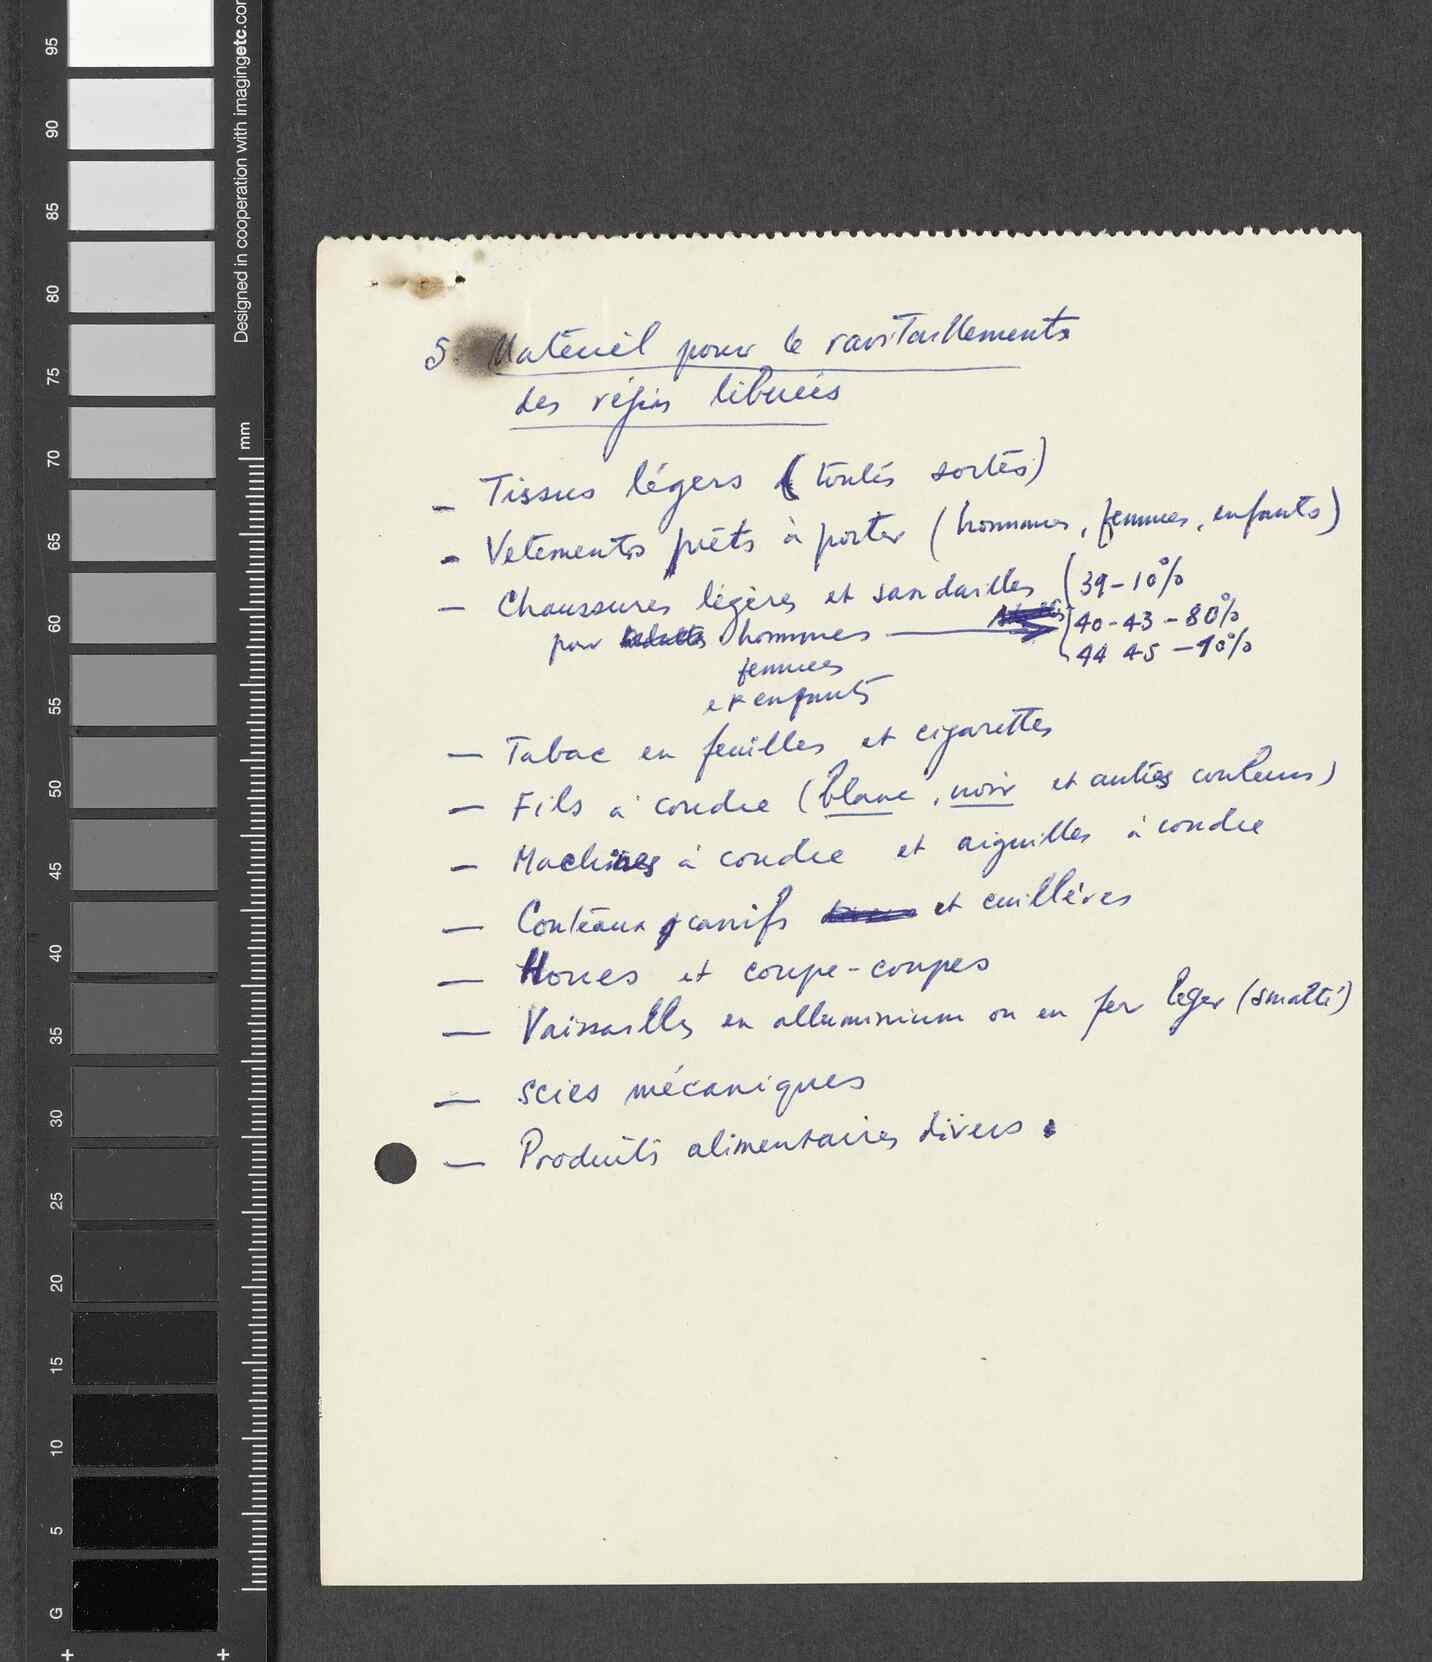 5 Matériel pour le ravitaillements
des régios liberées
- Tissus légers (toutes sortes)
- Vetements prêts à porter (hommes, femmes, enfants)
- Chaussures légères et sandailles (39-10%
pour hommes 40-43-80%
femmes 44 45-10%
et enfants
- Tabac en feuilles et cigarettes
- Fils à coudre (blanc, noir et autres couleurs)
- Machines à coudre et aiguilles à coudre
- Couteaux, canifs et cuillères
- Houes et coupe-coupes
- Vaissailles en alluminium ou en fer léger (smalté)
- Scies mécaniques
- Produits alimentaires divers.
Designed in cooperation with imagingetc.com
mm
95
90
85
80
75
70
65
60
55
50
45
40
35
30
25
20
15
10
5
G